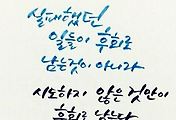 실패했던
일들이 후회로
남는것이 아니라
시도하지 않은 것만이
후회로 남는다